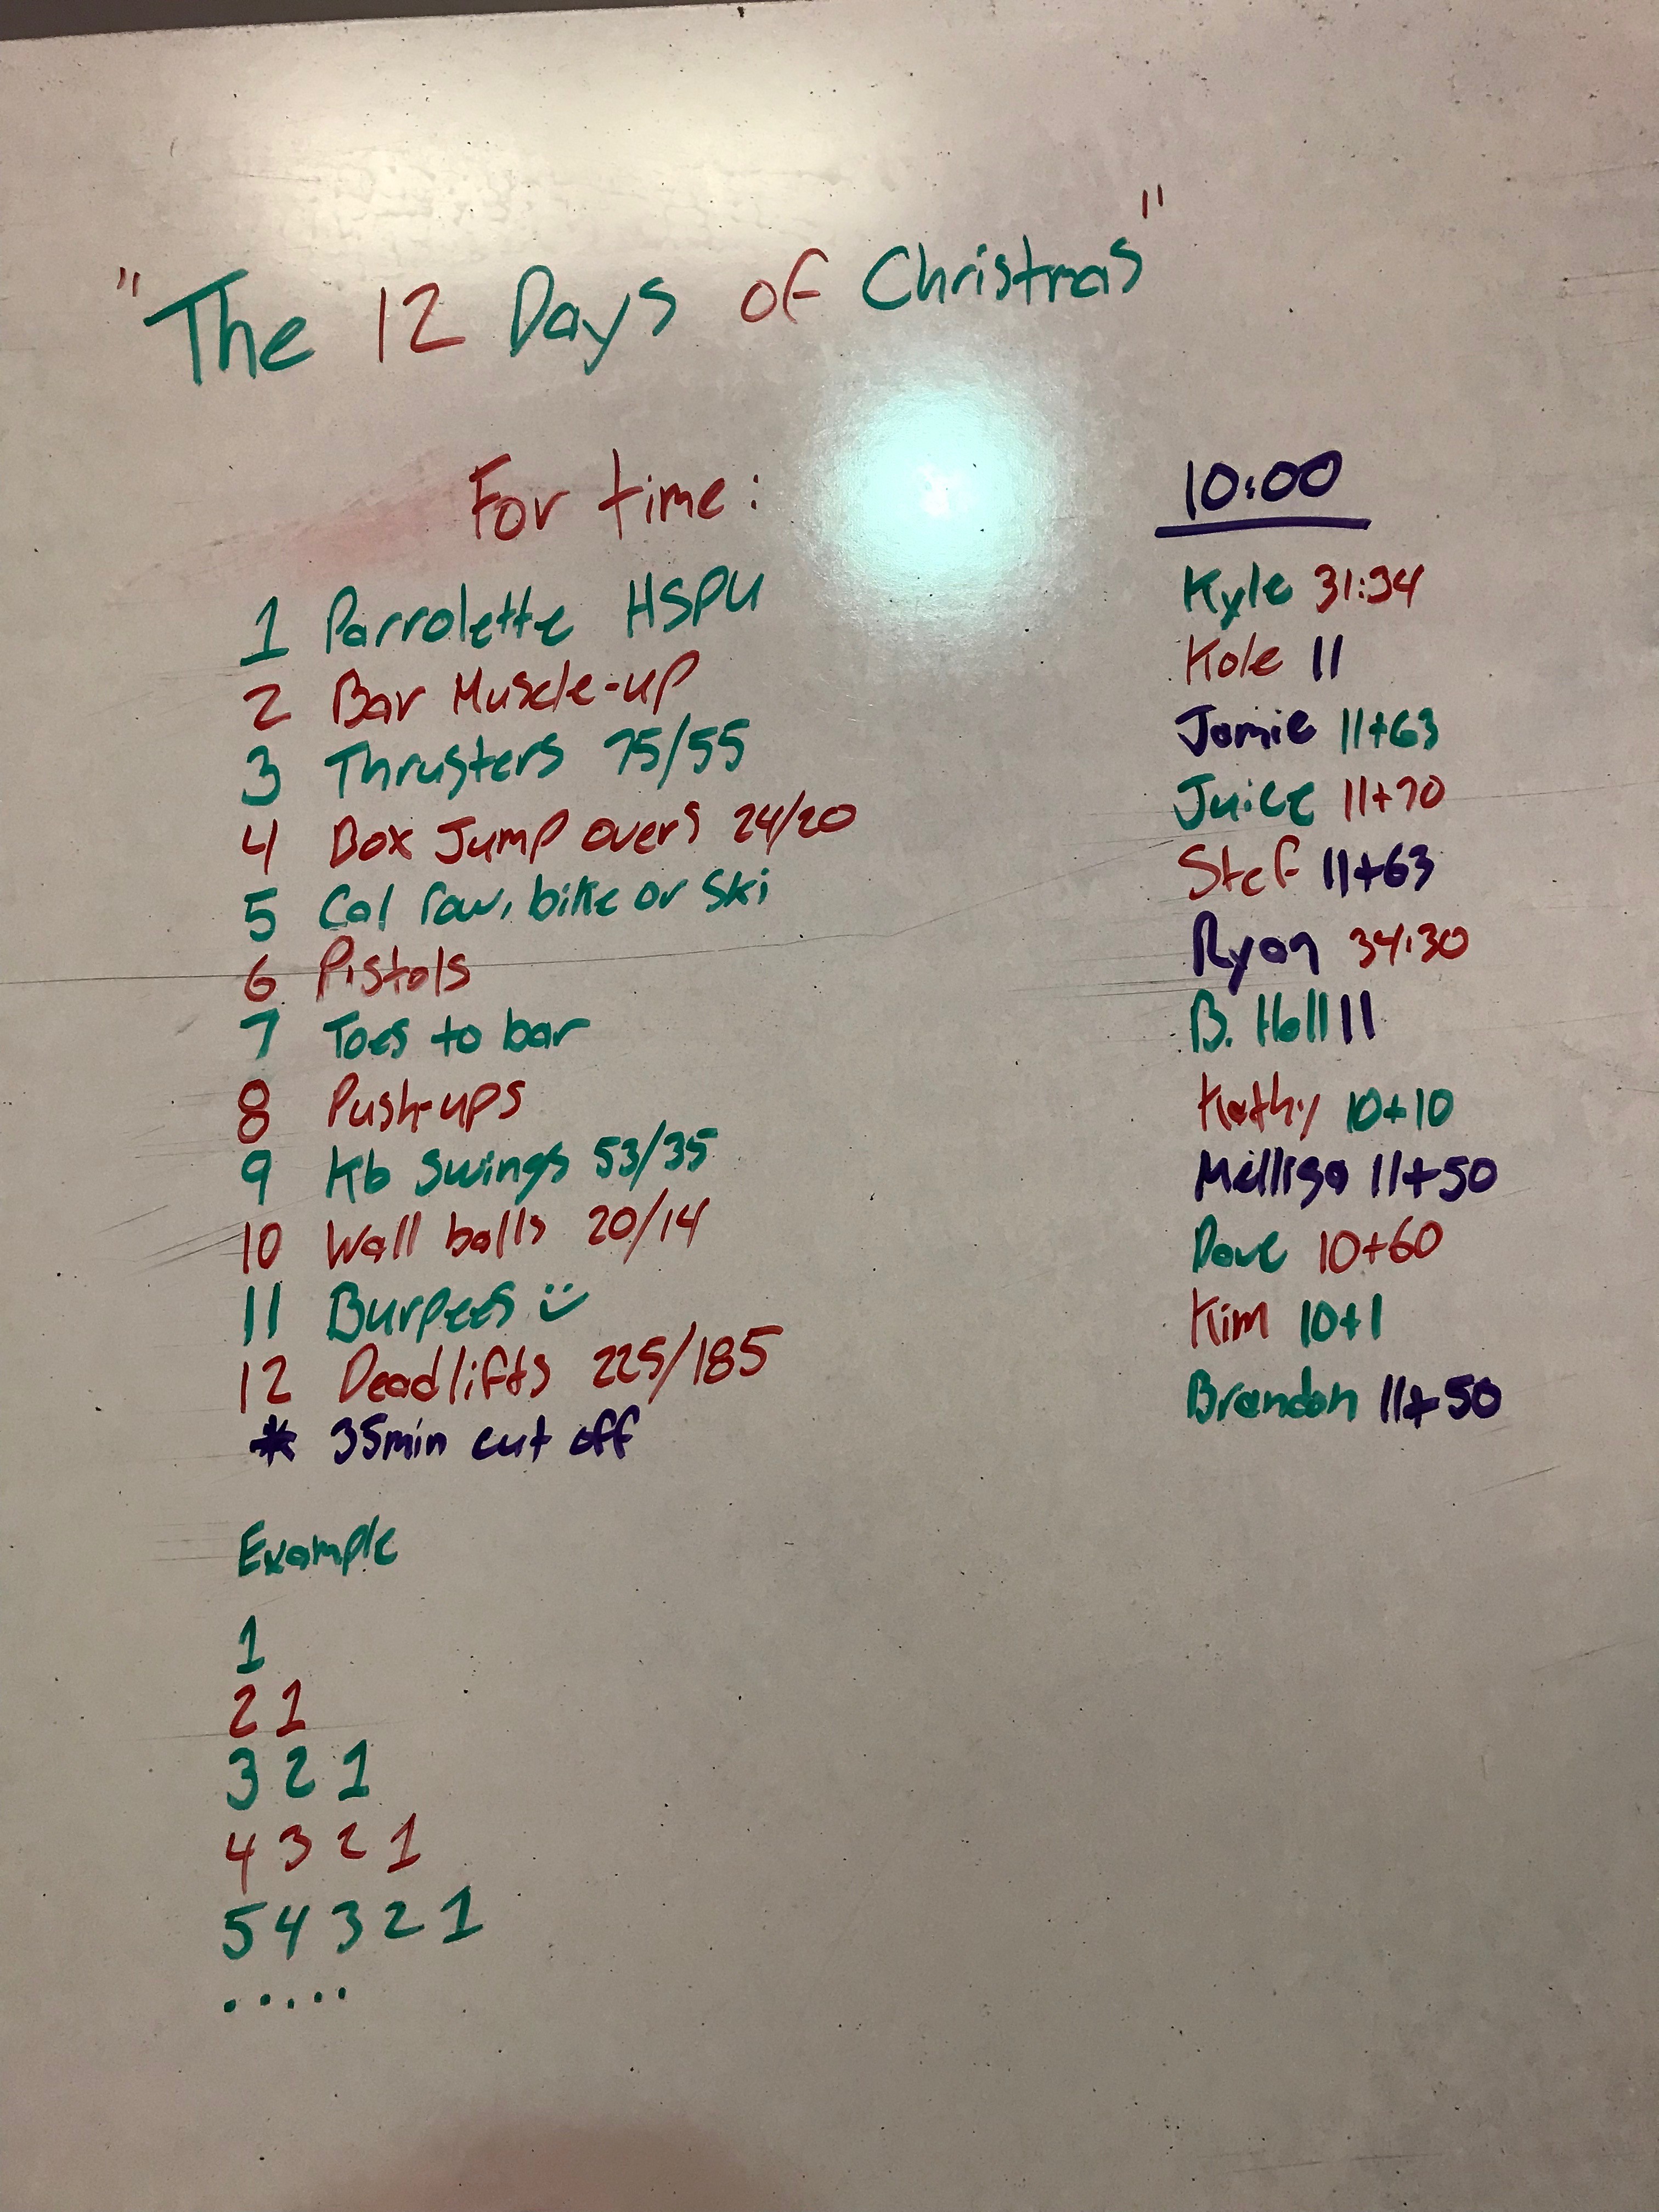 "The 12 Days of Christmas"
For time:
1 Parrolette HSPU
2 Bar Muscle-up
3 Thrusters 75/55
4 Box Jump overs 24/20
5 Cal row, bike or Ski
6 Pistols
7 Toes to bar
8 Push-ups
9 Kb swings 53/35
10 Wall balls 20/14
11 Burpees :)
12 Deadlifts 225/185
* 35min cut off
Example
1
2 1
3 2 1
4 3 2 1
5 4 3 2 1
.....
10:00
Kyle 31:34
Kole 11
Jamie 11+63
Juice 11+70
Stef 11+63
Ryan 34:30
B. Hall 11
Kathy 10+10
Melissa 11+50
Dave 10+60
Kim 10+1
Brandon 11+50